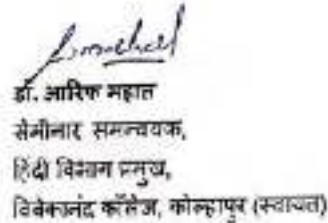 डॉ. आरिफ महात
सेमीनार समन्वयक,
हिंदी विभाग प्रमुख,
विवेकानंद कॉलेज, कोल्हापुर (स्वायत्त)